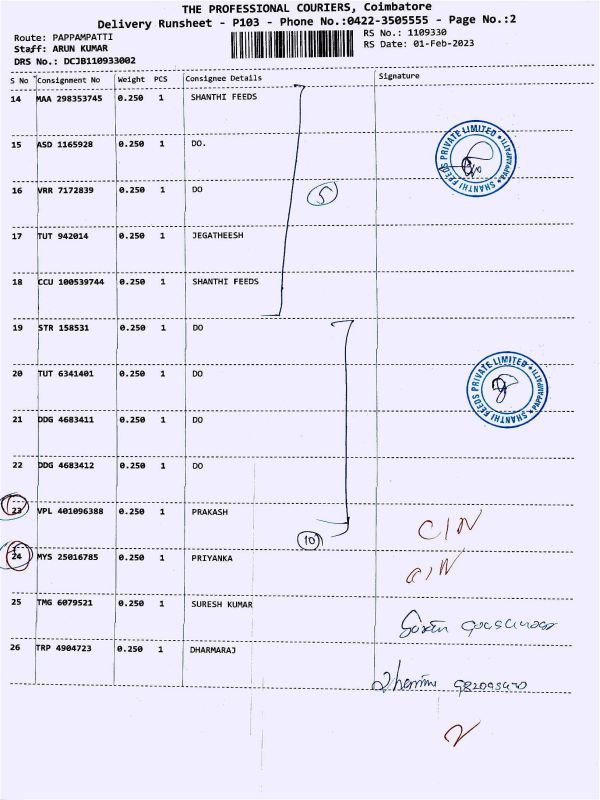 THE PROFESSIONAL COURIERS, Coimbatore
Delivery Runsheet - P103 - Phone No.:0422-3505555 - Page No.:2
Route: PAPPAMPATTI
RS No.: 1109330
Staff: ARUN KUMAR
RS Date: 01-Feb-2023
DRS No.: DCJB110933002
S No Consignment No Weight PCS Consignee Details Signature
14 MAA 298353745 0.250 1 SHANTHI FEEDS
15 ASD 1165928 0.250 1 DO.
SHANTHI FEEDS PRIVATE LIMITED * PAPPAMPATTI *
16 VRR 7172839 0.250 1 DO
5
17 TUT 942014 0.250 1 JEGATHEESH
18 CCU 100539744 0.250 1 SHANTHI FEEDS
19 STR 158531 0.250 1 DO
20 TUT 6341401 0.250 1 DO
SHANTHI FEEDS PRIVATE LIMITED * PAPPAMPATTI *
21 DDG 4683411 0.250 1 DO
22 DDG 4683412 0.250 1 DO
23 VPL 401096388 0.250 1 PRAKASH C/N
10
24 MYS 25016785 0.250 1 PRIYANKA C/N
25 TMG 6079521 0.250 1 SURESH KUMAR
26 TRP 4904723 0.250 1 DHARMARAJ
2